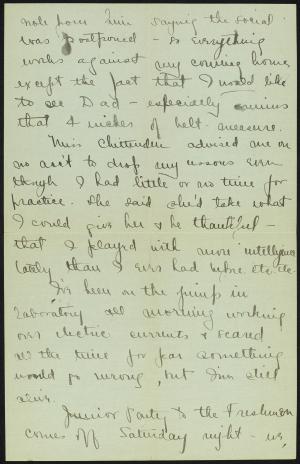 note from him saying the social
was postponed - so everything
works against my coming home,
except the fact that I would like
to see Dad - especially minus
that 4 inches of belt-measure.
Miss Chittenden advised me on
no acc't to drop my lessons even
though I had little or no time for
practice. She said she'd take what
I could give her & be thankful -
that I played with more intelligence
lately than I ever had before etc etc
I've been on the jump in
Laboratory all morning working
over electric currents & scared
all the time for fear something
would go wrong, but I'm still
alive.
Junior Party to the Freshmen
comes off Saturday night - we,